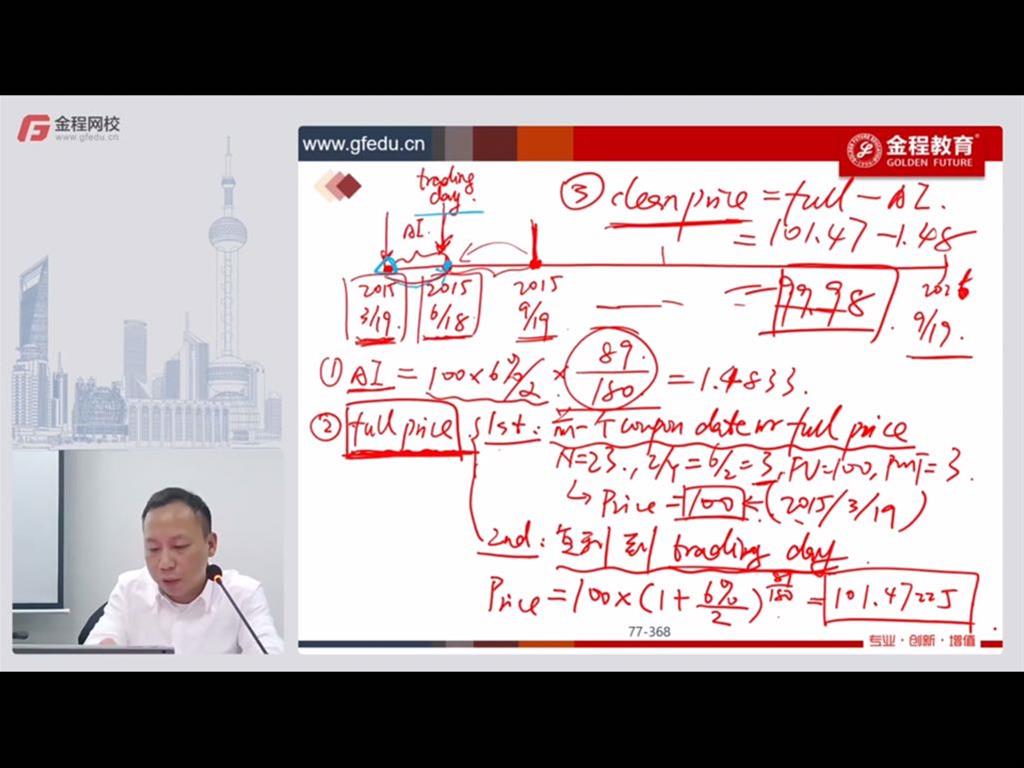 金程网校
www.gfedu.cn
www.gfedu.cn
金程教育
GOLDEN FUTURE
trading
day.
AI.
2015
3/19.
2015
6/18
2015
9/19
9/19.
③ clean price = full - AI.
= 101.47 - 1.48
= 99.98
① AI = 100×6%/2 × 89/180 = 1.4833.
② full price
1st: 前一个coupon date的full price
N=23, I/Y=6/2=3, FV=100, PMT=3.
↳ Price = 100 ← (2015/3/19)
2nd: 复利到trading day
Price = 100×(1+6%/2)^89/180 = 101.47225
77-368
专业·创新·增值